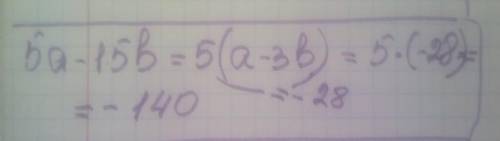 5a - 15b = 5(a - 3b) = 5 · (-28) =
= - 28
= - 140